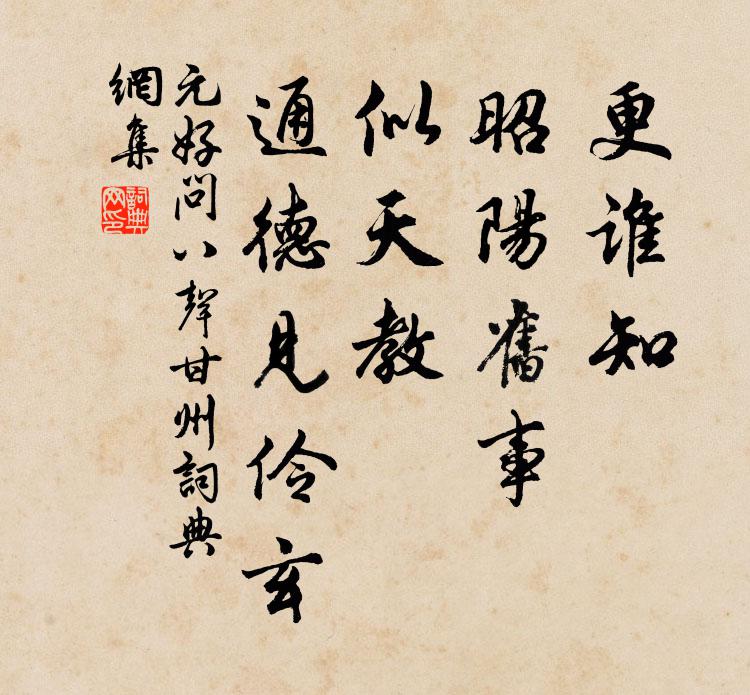 更谁知
昭陽舊事
似天教
通德見伶玄
元好問八聲甘州詞典
網集
詞典
网印